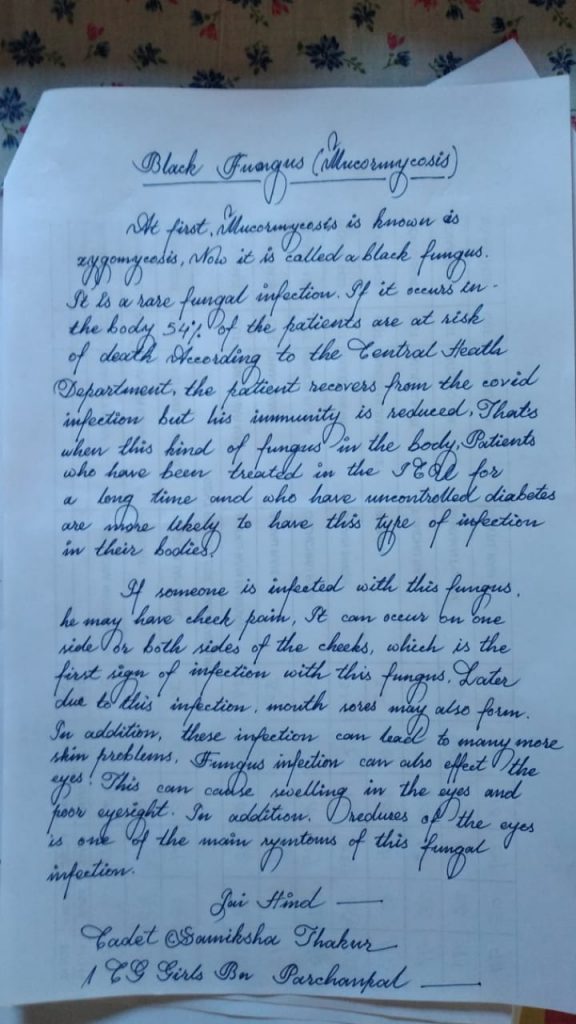 Black Fungus (Mucormycosis)
At first, Mucormycosis is known as
zygomycosis, Now it is called a black fungus.
It is a rare fungal infection. If it occurs in
the body 54% of the patients are at risk
of death According to the Central Heath
Department, the patient recovers from the covid
infection but his immunity is reduced, That's
when this kind of fungus in the body, Patients
who have been treated in the ICU for
a long time and who have uncontrolled diabetes
are more likely to have this type of infection
in their bodies.
If someone is infected with this fungus,
he may have cheek pain, It can occur on one
side or both sides of the cheeks, which is the
first sign of infection with this fungus. Later
due to this infection, mouth sores may also form.
In addition, these infection can lead to many more
skin problems. Fungus infection can also effect the
eyes. This can cause swelling in the eyes and
poor eyesight. In addition, redness of the eyes
is one of the main symtoms of this fungal
infection.
Jai Hind —
Cadet Samiksha Thakur
1 CG Girls Bn Parchanpal —